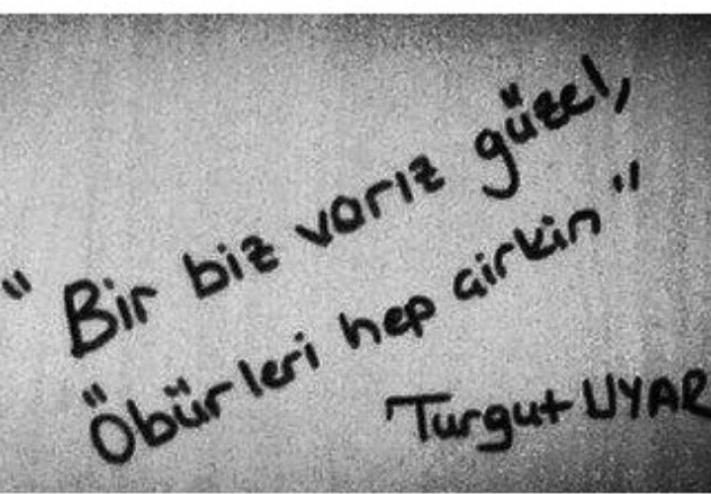 "Bir biz varız güzel,
Öbürleri hep çirkin"
Turgut UYAR